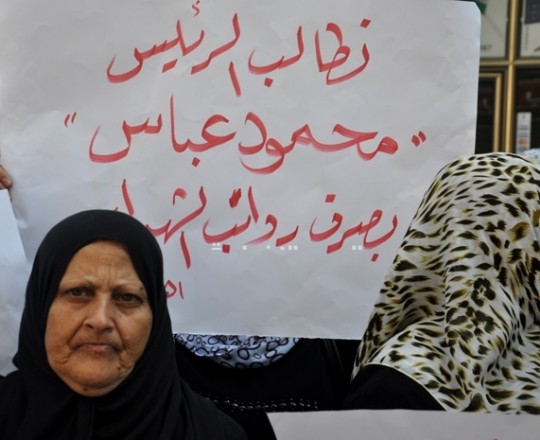 نطالب الرئيس
"محمود عباس"
بصرف رواتب الشهداء